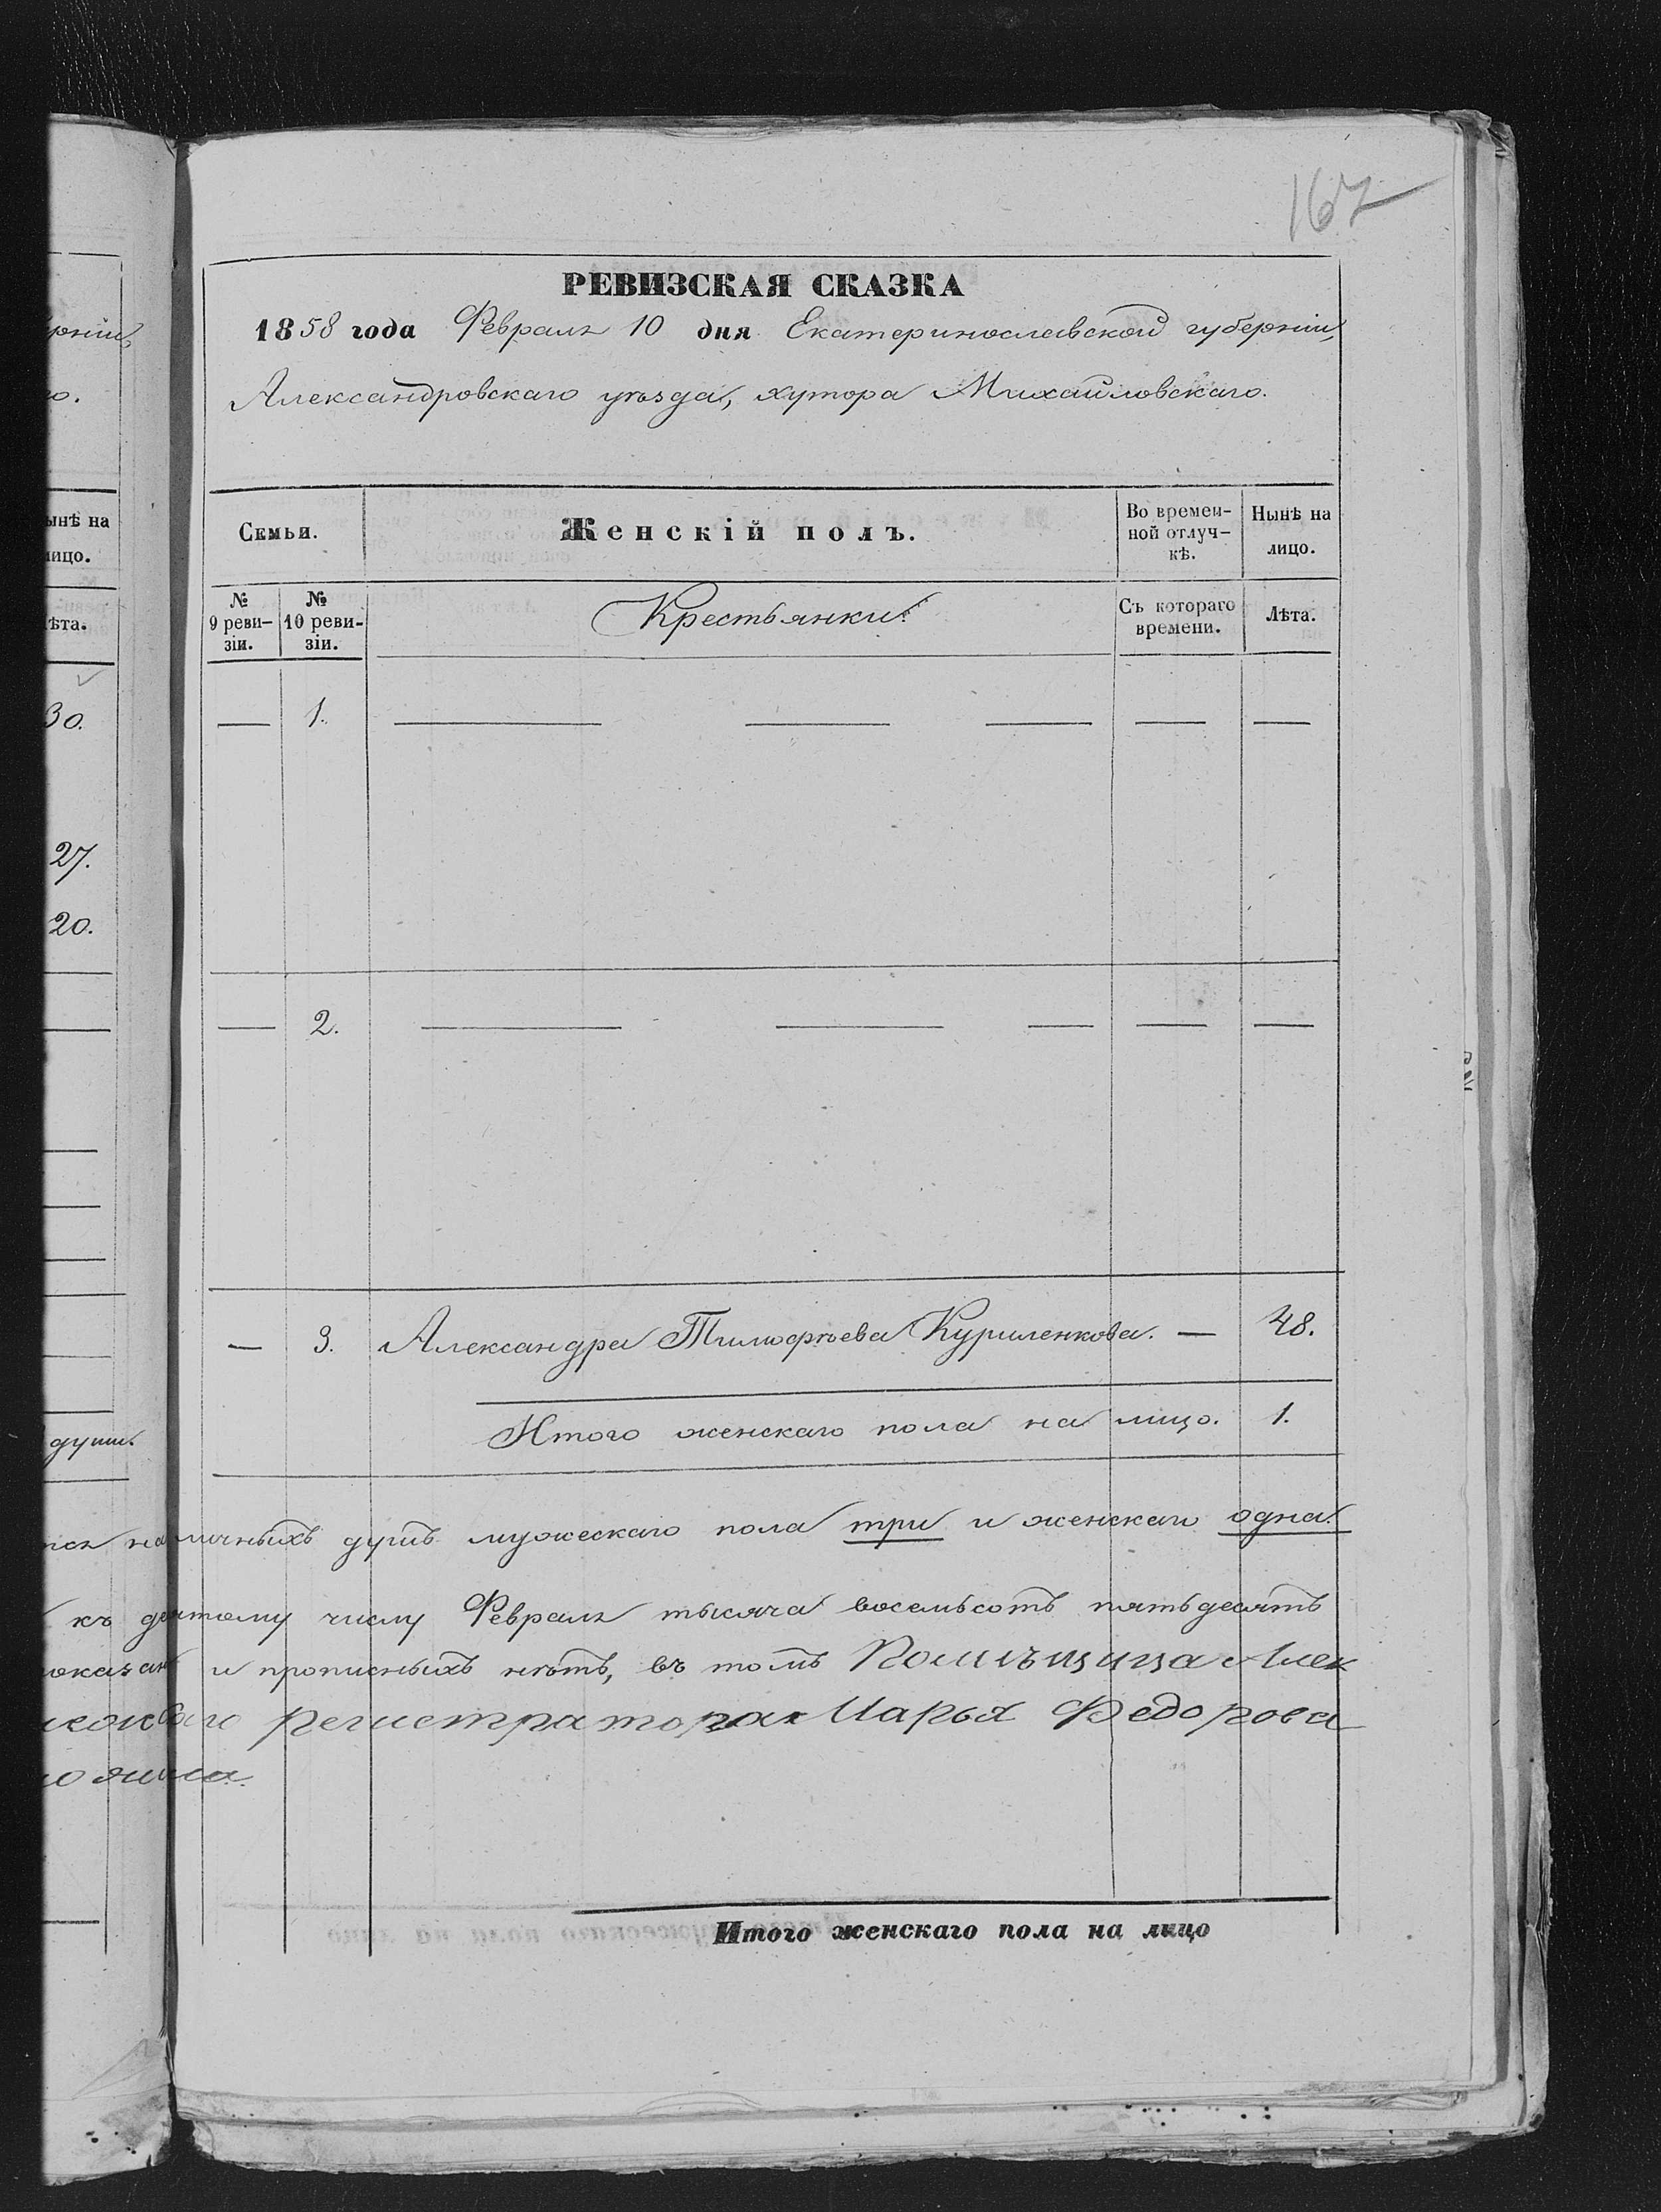 167
РЕВИЗСКАЯ СКАЗКА
1858 года Февраля 10 дня Екатеринославской губерніи,
Александровскаго уѣзда, хутора Михайловскаго.
Семьи. Женскій полъ. Во времен-ной отлуч-кѣ. Ныньѣ на лицо.
№ 9 реви-зіи. № 10 реви-зіи. Крестьянки. Съ котораго времени. Лѣта.
— 1. — — — — —
— 2. — — — — —
— 3. Александра Тимофѣева Куриленкова. — 48.
Итого женскаго пола на лицо. 1.
наличныхъ душъ мужескаго пола три и женскаго одна.
къ десятому числу Февраля тысяча восемьсотъ пятьдесятъ
и прописныхъ нѣтъ, въ томъ Помѣщица Алек
регистратора Марья Федорова
Итого женскаго пола на лицо
ерніи,
ынѣ на
лицо.
ѣта.
30.
27.
20.
души.